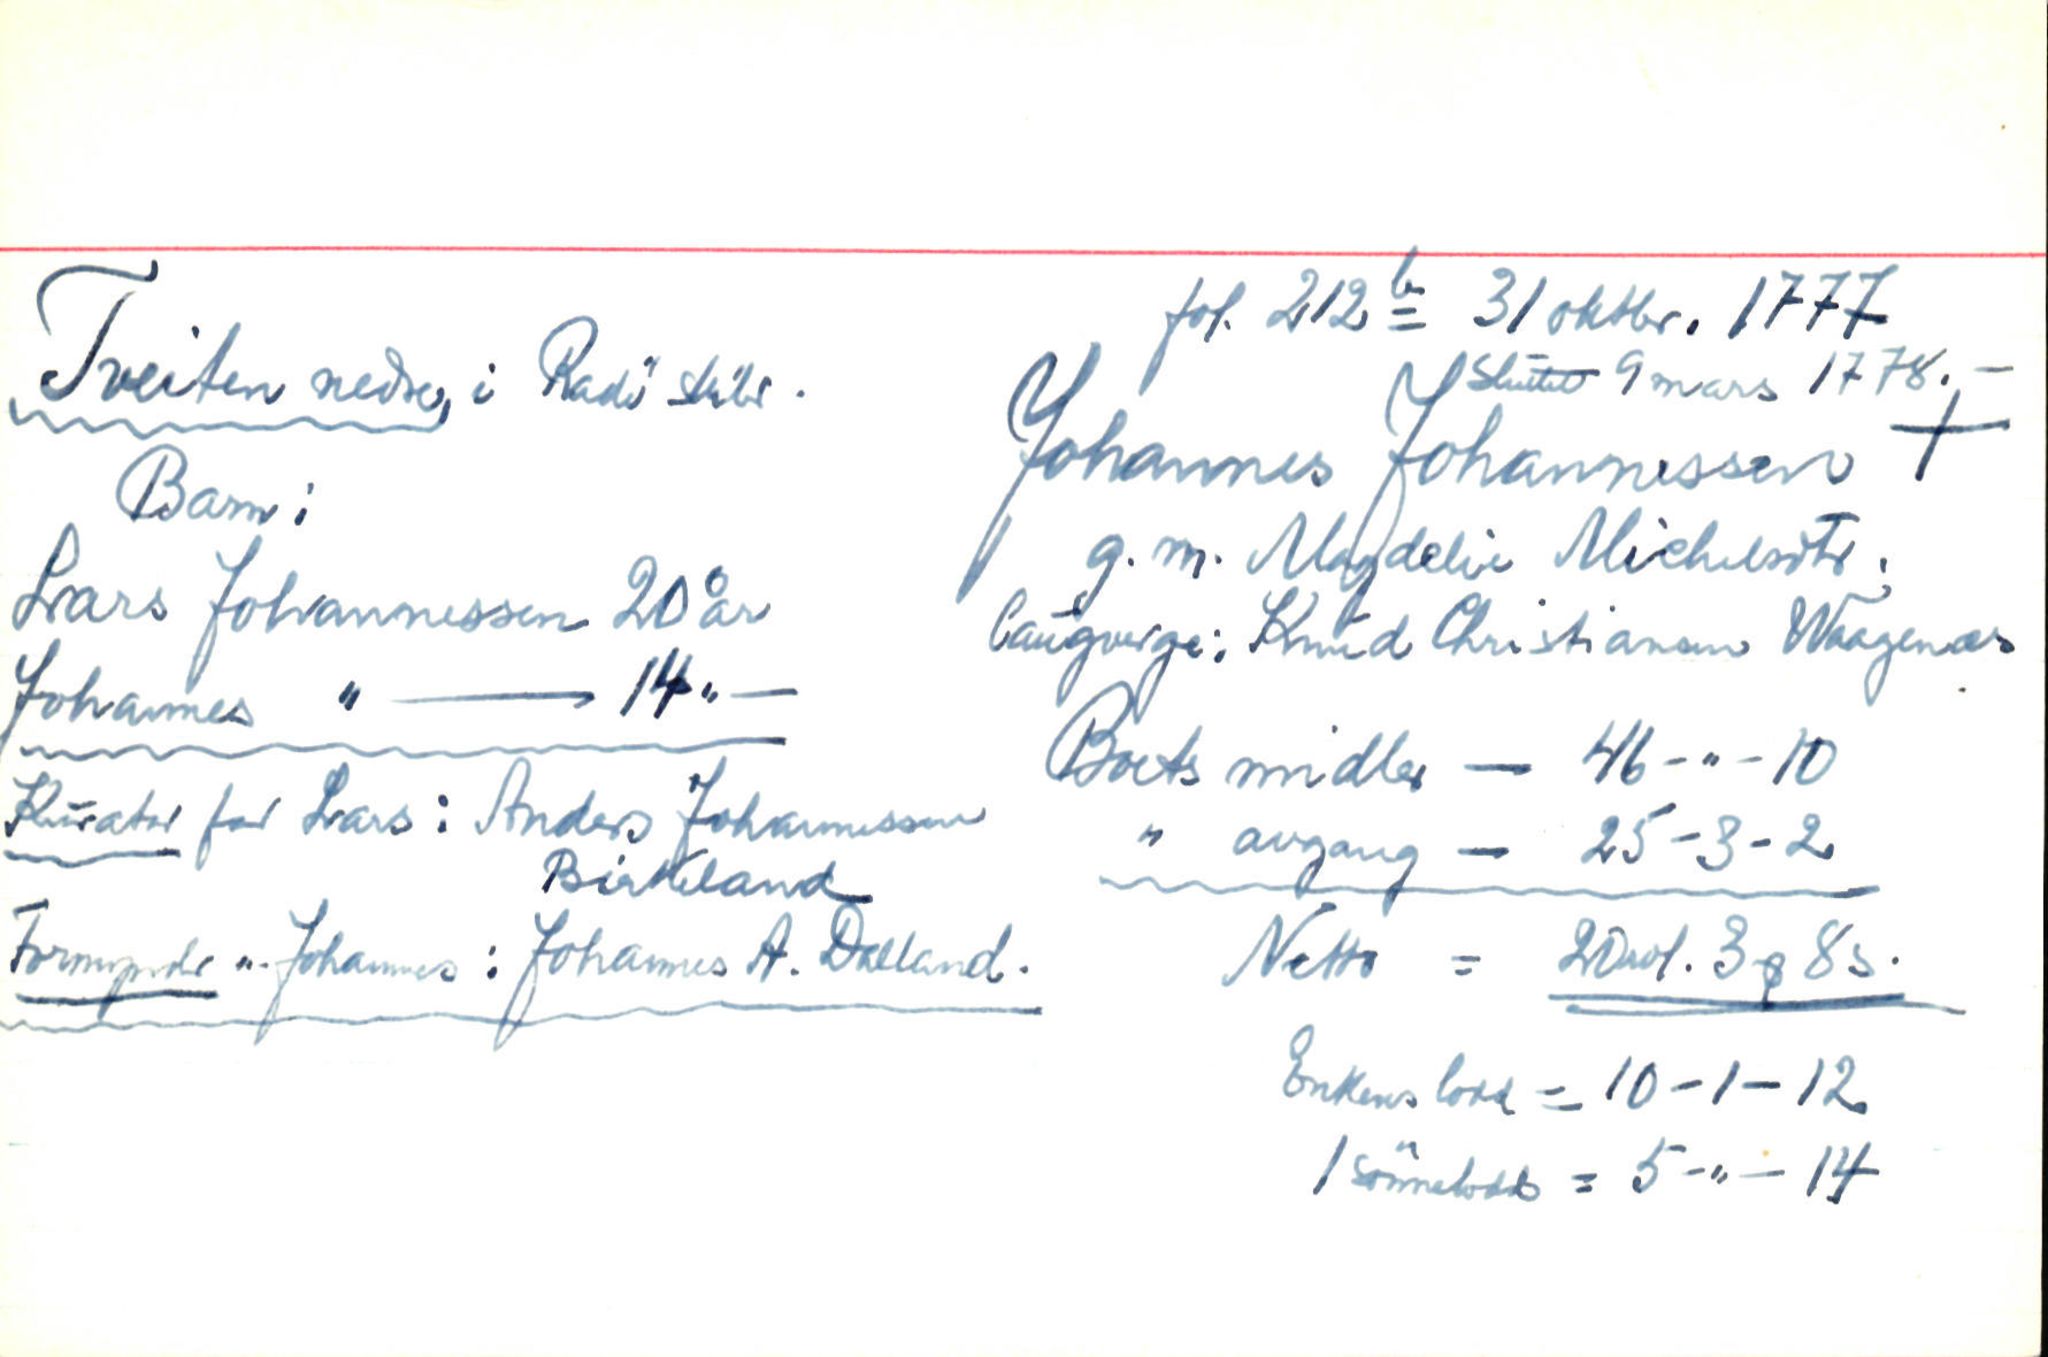 Tveiten nedre, i Radö skibr.
Barn:
Lars Johannessen 20 år
Johannes " — 14 " —
Kurator for Lars: Anders Johannessen
Birkeland
Formynder " Johannes: Johannes A. Dalland.
fol. 212 b = 31 oktbr. 1777
Sluttet 9 mars 1778. —
Johannes Johannessen +
g. m. Magdeli Michelsdtr.
laugverge: Knud Christiansen Waagenes
Boets midler — 46 - " - 10
" avgang — 25 - 3 - 2
Netto = 20 rd. 3 ƍ 8 s.
Enkens lodd = 10 - 1 - 12
1 sönnelodd = 5 - " - 14